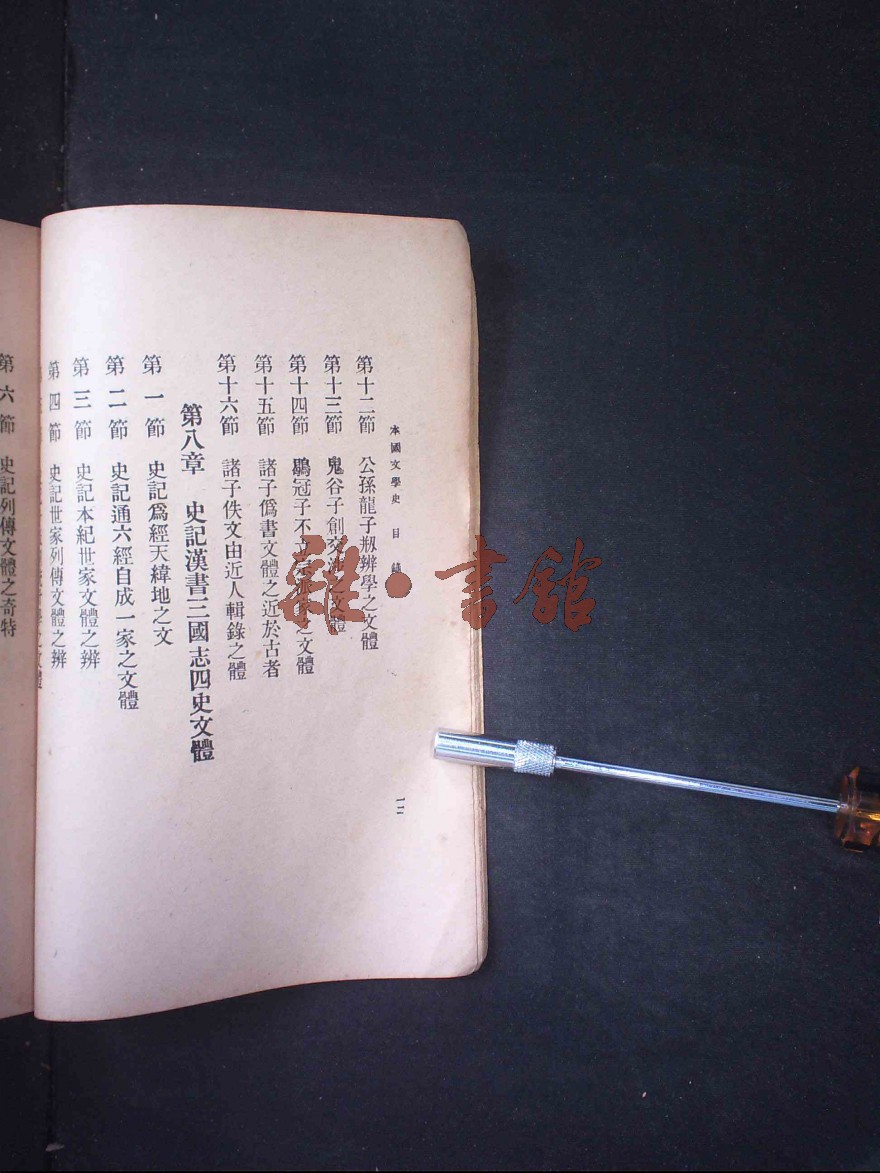 本國文學史 目錄
第十二節 公孫龍子剏辨學之文體
第十三節 鬼谷子創交涉之文體
第十四節 鶡冠子不立之文體
第十五節 諸子僞書文體之近於古者
第十六節 諸子佚文由近人輯錄之體
第八章 史記漢書三國志四史文體
第一節 史記爲經天緯地之文
第二節 史記通六經自成一家之文體
第三節 史記本紀世家文體之辨
第四節 史記世家列傳文體之辨
第六節 史記列傳文體之奇特
雜·書館